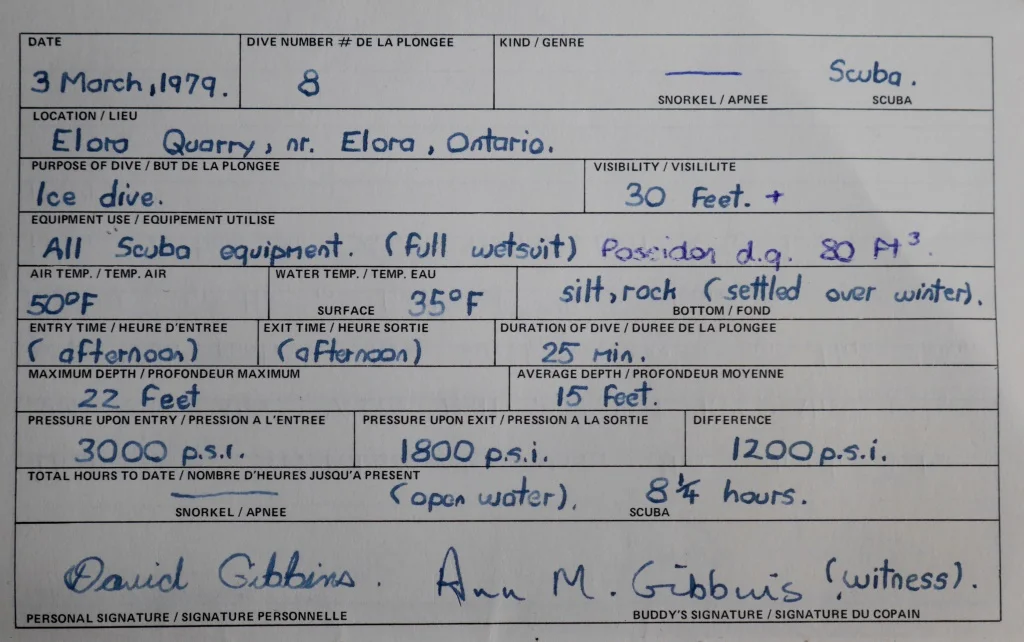 DATE DIVE NUMBER # DE LA PLONGEE KIND / GENRE
3 March, 1979. 8 Scuba.
SNORKEL / APNEE SCUBA
LOCATION / LIEU
Elora Quarry, nr. Elora, Ontario.
PURPOSE OF DIVE / BUT DE LA PLONGEE VISIBILITY / VISILILITE
Ice dive. 30 Feet. +
EQUIPMENT USE / EQUIPEMENT UTILISE
All Scuba equipment. (full wetsuit) Poseidon d.q. 80 Ft³.
AIR TEMP. / TEMP. AIR WATER TEMP. / TEMP. EAU
50°F SURFACE 35°F silt, rock (settled over winter).
BOTTOM / FOND
ENTRY TIME / HEURE D'ENTREE EXIT TIME / HEURE SORTIE DURATION OF DIVE / DUREE DE LA PLONGEE
(afternoon) (afternoon) 25 min.
MAXIMUM DEPTH / PROFONDEUR MAXIMUM AVERAGE DEPTH / PROFONDEUR MOYENNE
22 Feet 15 Feet.
PRESSURE UPON ENTRY / PRESSION A L'ENTREE PRESSURE UPON EXIT / PRESSION A LA SORTIE DIFFERENCE
3000 p.s.i. 1800 p.s.i. 1200 p.s.i.
TOTAL HOURS TO DATE / NOMBRE D'HEURES JUSQU'A PRESENT
(open water). 8¼ hours.
SNORKEL / APNEE SCUBA
David Gibbins. Ann M. Gibbins (witness).
PERSONAL SIGNATURE / SIGNATURE PERSONNELLE BUDDY'S SIGNATURE / SIGNATURE DU COPAIN